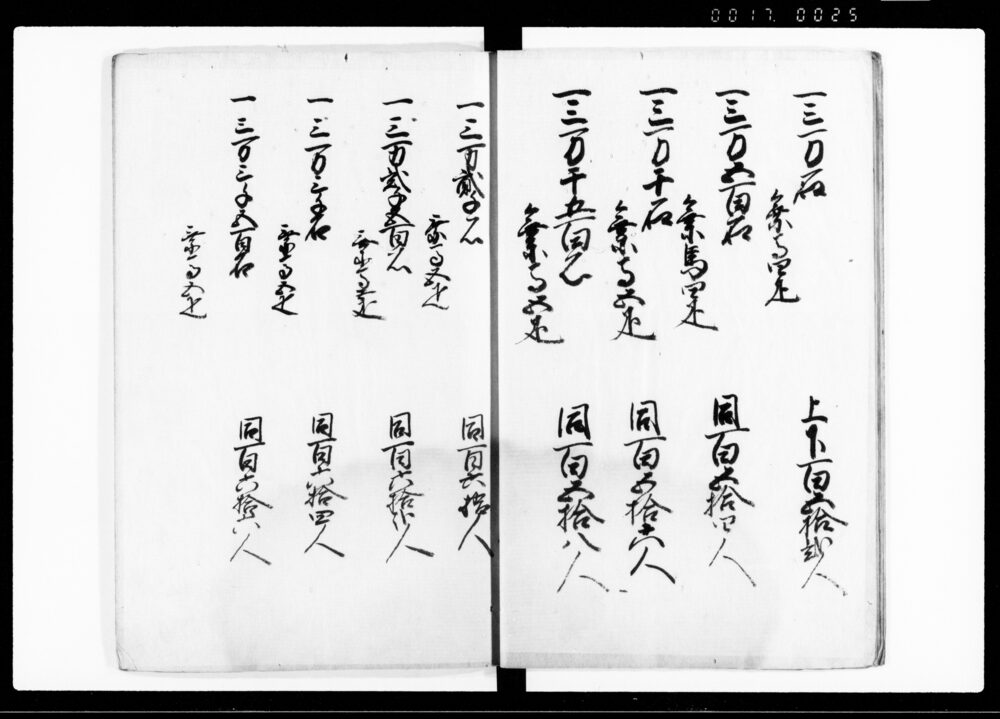 0017 0025
一三万石
乗馬四疋
上下百五拾弐人
一三万五百石
乗馬四疋
同百五拾四人
一三万千石
乗馬五疋
同百五拾六人
一三万千五百石
乗馬五疋
同百五拾八人
一三万弐千石
乗馬五疋
同百六拾人
一三万弐千五百石
乗馬五疋
同百六拾弐人
一三万三千石
乗馬五疋
同百六拾四人
一三万三千五百石
乗馬五疋
同百六拾六人